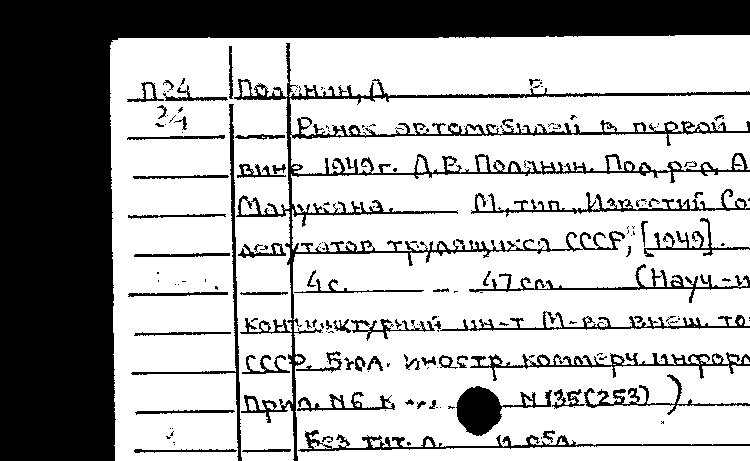 П24 Полянин, Д В
24
Рынок автомобилей в первой
вине 1949г. Д.В.Полянин. Под ред. А
Манукяна. М., тип. „Известий Со
депутатов трудящихся СССР", [1949].
4с. 47см. (Науч.-и
конъюнктурный ин-т М-ва внеш. то
СССР. Бюл. иностр. коммерч. информ
Прил. N6 к N135(253) ).
Без тит. л. и обл.